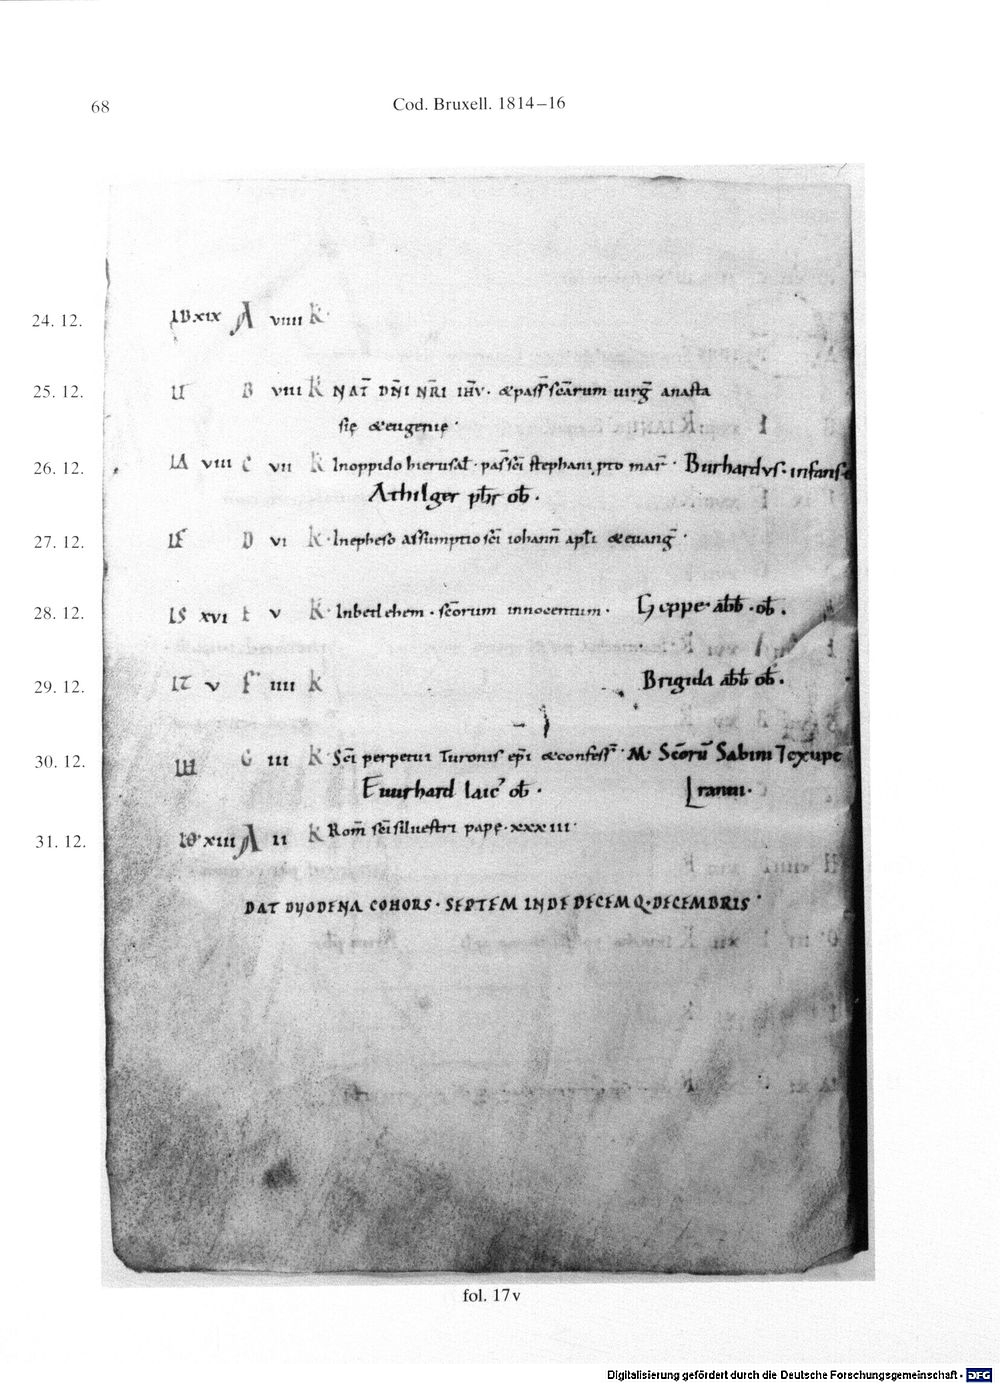 68
Cod. Bruxell. 1814–16
24. 12. XIX A VIIII K·
25. 12. B VIII K NAT̄ DN̄I NR̄I IHV̄· & pass̄ sc̄arum uirḡ anasta
się & eugenię·
26. 12. VIII C VII K In oppido hierusal̄· pas̄ sc̄i stephani pro mar̄· Burhardus· infans
Athilger pb̄r ob̄·
27. 12. D VI K· In epheso assumptio sc̄i iohann̄ apl̄i & euanḡ·
28. 12. XVI E V K· In betlehem· sc̄orum innocentum· Geppe· abb̄· ob̄·
29. 12. V F IIII K Brigida abb̄ ob̄·
30. 12. G III K Sc̄i perpetui Turonis ep̄i & confess̄· M· Sc̄orū Sabini ⁊ exupe
Euurhard laic' ob̄· L rannii·
31. 12. XIII A II K Rom̄ sc̄i siluestri papę· XXXIII·
DAT DUODENA COHORS· SEPTEM INDE DECEMQ· DECEMBRIS·
fol. 17v
Digitalisierung gefördert durch die Deutsche Forschungsgemeinschaft - DFG